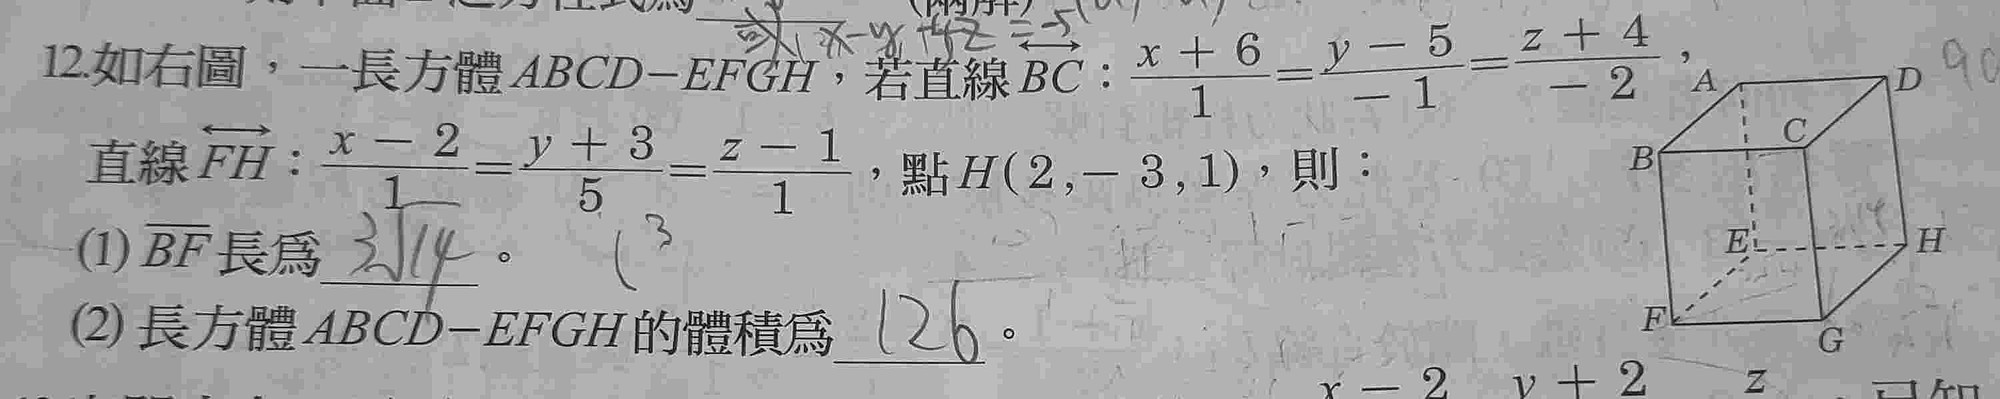 或 x-y+4z=-5
12.如右圖，一長方體ABCD－EFGH，若直線BC：x+6/1=y-5/-1=z+4/-2，
直線FH：x-2/1=y+3/5=z-1/1，點H(2,-3,1)，則：
(1) BF長為 3√14 。
(2) 長方體ABCD－EFGH的體積為 126 。
A
D
B
C
E
H
F
G
x-2 y+2 z